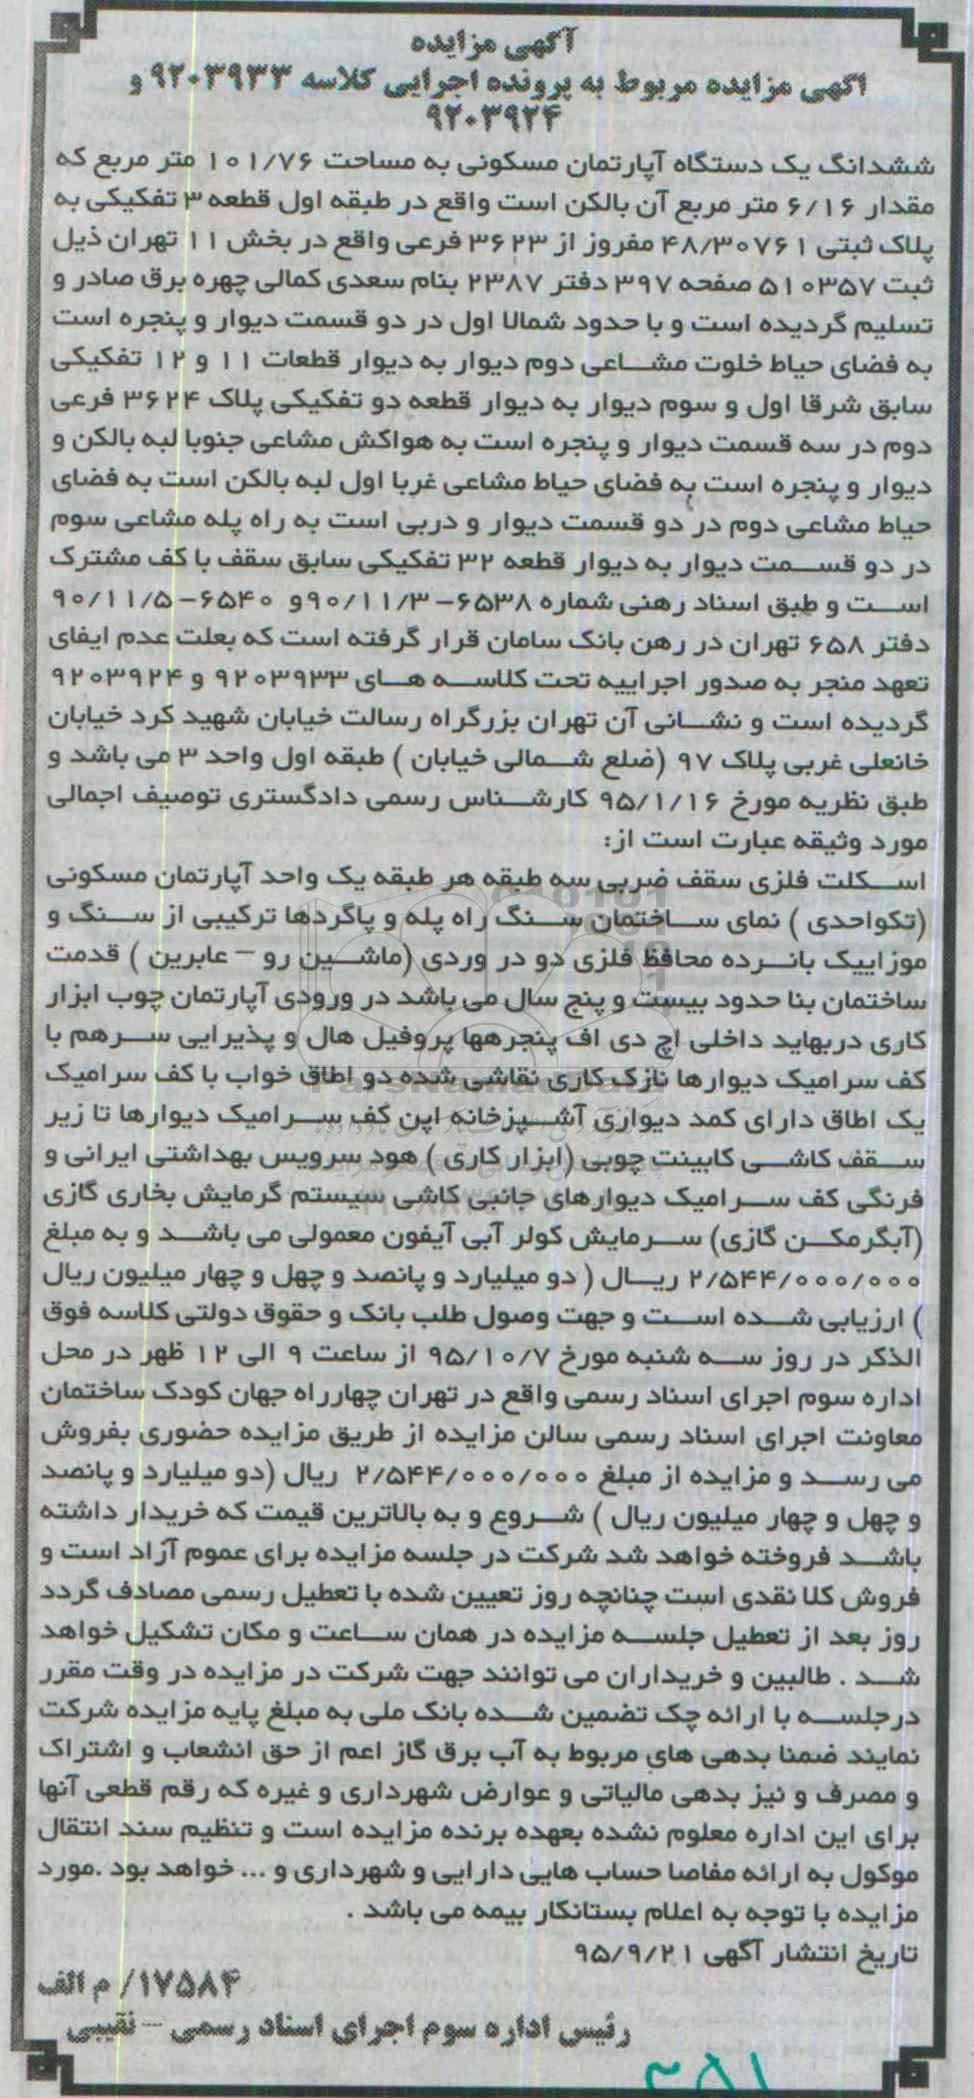 آگهی مزایده
اگهی مزایده مربوط به پرونده اجرایی کلاسه ۹۲۰۳۹۳۳ و
۹۲۰۳۹۲۴
ششدانگ یک دستگاه آپارتمان مسکونی به مساحت ۱۰۱/۷۶ متر مربع که
مقدار ۶/۱۶ متر مربع آن بالکن است واقع در طبقه اول قطعه ۳ تفکیکی به
پلاک ثبتی ۴۸/۳۰۷۶۱ مفروز از ۳۶۲۳ فرعی واقع در بخش ۱۱ تهران ذیل
ثبت ۵۱۰۳۵۷ صفحه ۳۹۷ دفتر ۲۳۸۷ بنام سعدی کمالی چهره برق صادر و
تسلیم گردیده است و با حدود شمالا اول در دو قسمت دیوار و پنجره است
به فضای حیاط خلوت مشاعی دوم دیوار به دیوار قطعات ۱۱ و ۱۲ تفکیکی
سابق شرقا اول و سوم دیوار به دیوار قطعه دو تفکیکی پلاک ۳۶۲۴ فرعی
دوم در سه قسمت دیوار و پنجره است به هواکش مشاعی جنوبا لبه بالکن و
دیوار و پنجره است به فضای حیاط مشاعی غربا اول لبه بالکن است به فضای
حیاط مشاعی دوم در دو قسمت دیوار و دربی است به راه پله مشاعی سوم
در دو قسمت دیوار به دیوار قطعه ۳۲ تفکیکی سابق سقف با کف مشترک
است و طبق اسناد رهنی شماره ۶۵۳۸-۹۰/۱۱/۳و ۶۵۴۰-۹۰/۱۱/۵
دفتر ۶۵۸ تهران در رهن بانک سامان قرار گرفته است که بعلت عدم ایفای
تعهد منجر به صدور اجراییه تحت کلاسه های ۹۲۰۳۹۳۳ و ۹۲۰۳۹۲۴
گردیده است و نشانی آن تهران بزرگراه رسالت خیابان شهید کرد خیابان
خانعلی غربی پلاک ۹۷ (ضلع شمالی خیابان ) طبقه اول واحد ۳ می باشد و
طبق نظریه مورخ ۹۵/۱/۱۶ کارشناس رسمی دادگستری توصیف اجمالی
مورد وثیقه عبارت است از:
اسکلت فلزی سقف ضربی سه طبقه هر طبقه یک واحد آپارتمان مسکونی
(تکواحدی ) نمای ساختمان سنگ راه پله و پاگردها ترکیبی از سنگ و
موزاییک بانرده محافظ فلزی دو در وردی (ماشین رو – عابرین ) قدمت
ساختمان بنا حدود بیست و پنج سال می باشد در ورودی آپارتمان چوب ابزار
کاری دربهاید داخلی اچ دی اف پنجرهها پروفیل هال و پذیرایی سرهم با
کف سرامیک دیوارها نازک کاری نقاشی شده دو اطاق خواب با کف سرامیک
یک اطاق دارای کمد دیواری آشپزخانه اپن کف سرامیک دیوارها تا زیر
سقف کاشی کابینت چوبی (ابزار کاری ) هود سرویس بهداشتی ایرانی و
فرنگی کف سرامیک دیوارهای جانبی کاشی سیستم گرمایش بخاری گازی
(آبگرمکن گازی) سرمایش کولر آبی آیفون معمولی می باشد و به مبلغ
۲/۵۴۴/۰۰۰/۰۰۰ ریال ( دو میلیارد و پانصد و چهل و چهار میلیون ریال
) ارزیابی شده است و جهت وصول طلب بانک و حقوق دولتی کلاسه فوق
الذکر در روز سه شنبه مورخ ۹۵/۱۰/۷ از ساعت ۹ الی ۱۲ ظهر در محل
اداره سوم اجرای اسناد رسمی واقع در تهران چهارراه جهان کودک ساختمان
معاونت اجرای اسناد رسمی سالن مزایده از طریق مزایده حضوری بفروش
می رسد و مزایده از مبلغ ۲/۵۴۴/۰۰۰/۰۰۰ ریال (دو میلیارد و پانصد
و چهل و چهار میلیون ریال ) شروع و به بالاترین قیمت که خریدار داشته
باشد فروخته خواهد شد شرکت در جلسه مزایده برای عموم آزاد است و
فروش کلا نقدی است چنانچه روز تعیین شده با تعطیل رسمی مصادف گردد
روز بعد از تعطیل جلسه مزایده در همان ساعت و مکان تشکیل خواهد
شد . طالبین و خریداران می توانند جهت شرکت در مزایده در وقت مقرر
درجلسه با ارائه چک تضمین شده بانک ملی به مبلغ پایه مزایده شرکت
نمایند ضمنا بدهی های مربوط به آب برق گاز اعم از حق انشعاب و اشتراک
و مصرف و نیز بدهی مالیاتی و عوارض شهرداری و غیره که رقم قطعی آنها
برای این اداره معلوم نشده بعهده برنده مزایده است و تنظیم سند انتقال
موکول به ارائه مفاصا حساب هایی دارایی و شهرداری و ... خواهد بود .مورد
مزایده با توجه به اعلام بستانکار بیمه می باشد .
تاریخ انتشار آگهی ۹۵/۹/۲۱
۱۷۵۸۴/ م الف
رئیس اداره سوم اجرای اسناد رسمی – نقیبی